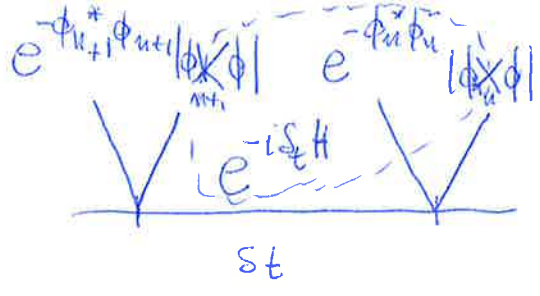 e^{-ϕ*_{n+1}ϕ_{n+1}}|ϕ_{n+1}⟩⟨ϕ| e^{-ϕ*_nϕ_n}|ϕ_n⟩⟨ϕ|
e^{-iδ_tH}
δt